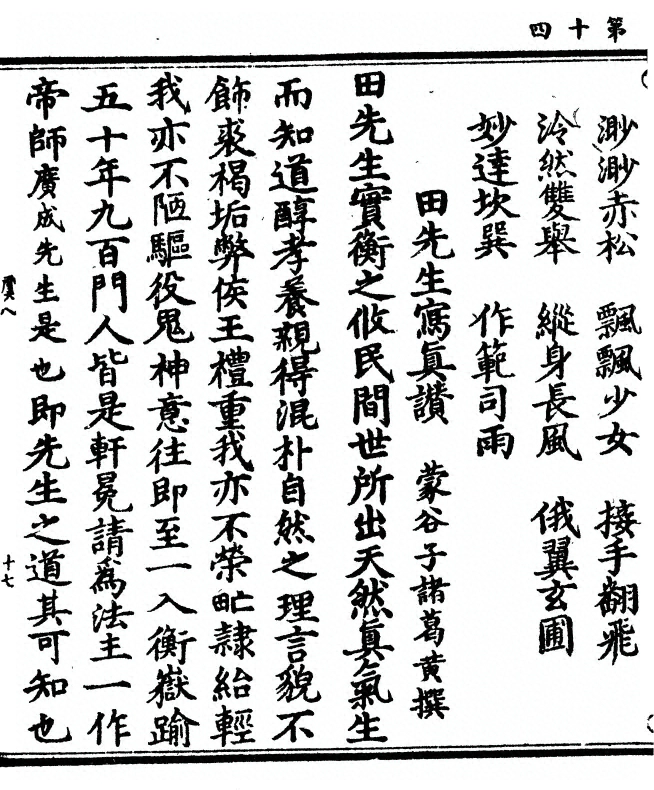 第十四
渺渺赤松　飄飄少女　接手翻飛
泠然雙舉　縱身長風　俄翼玄圃
妙達坎巽　作範司雨
田先生寫眞讚　蒙谷子諸葛黄撰
田先生實衡之攸民間世所出天然眞氣生
而知道醇孝養親得混朴自然之理言貌不
飾裘褐垢弊侯王禮重我亦不榮甿隷紿輕
我亦不陋驅役鬼神意往即至一入衡嶽踰
五十年九百門人皆是軒冕請爲法主一作
帝師廣成先生是也即先生之道其可知也
虞八
十七